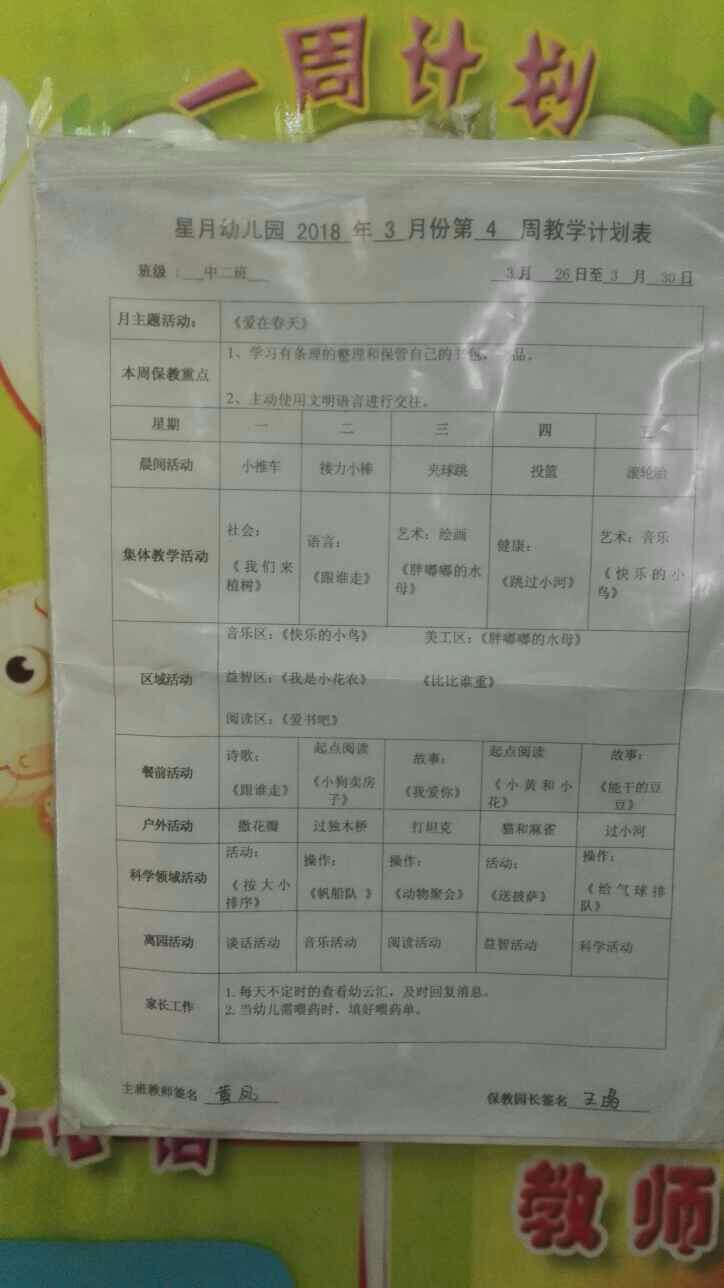 一周计划
星月幼儿园 2018 年 3 月份第 4 周教学计划表
班级：中二班 3月 26日至3 月 30日
月主题活动： 《爱在春天》
本周保教重点 1、学习有条理的整理和保管自己的 包， 品。
2、主动使用文明语言进行交往。
星期 一 二 三 四
晨间活动 小推车 接力小棒 夹球跳 投篮 滚轮胎
集体教学活动
社会：
《我们来
植树》
语言：
《跟谁走》
艺术：绘画
《胖嘟嘟的水
母》
健康：
《跳过小河》
艺术：音乐
《快乐的小
鸟》
区域活动
音乐区：《快乐的小鸟》 美工区：《胖嘟嘟的水母》
益智区：《我是小花农》 《比比谁重》
阅读区：《爱书吧》
餐前活动
诗歌：
《跟谁走》
起点阅读
《小狗卖房
子》
故事：
《我爱你》
起点阅读
《小黄和小
花》
故事：
《能干的豆
豆》
户外活动 撒花瓣 过独木桥 打坦克 猫和麻雀 过小河
科学领域活动
活动：
《按大小
排序》
操作：
《帆船队 》
操作：
《动物聚会》
活动：
《送披萨》
操作：
《给气球排
队》
离园活动 谈话活动 音乐活动 阅读活动 益智活动 科学活动
家长工作
1.每天不定时的查看幼云汇，及时回复消息。
2.当幼儿需喂药时，填好喂药单。
主班教师签名 黄凤 保教园长签名 王
教师